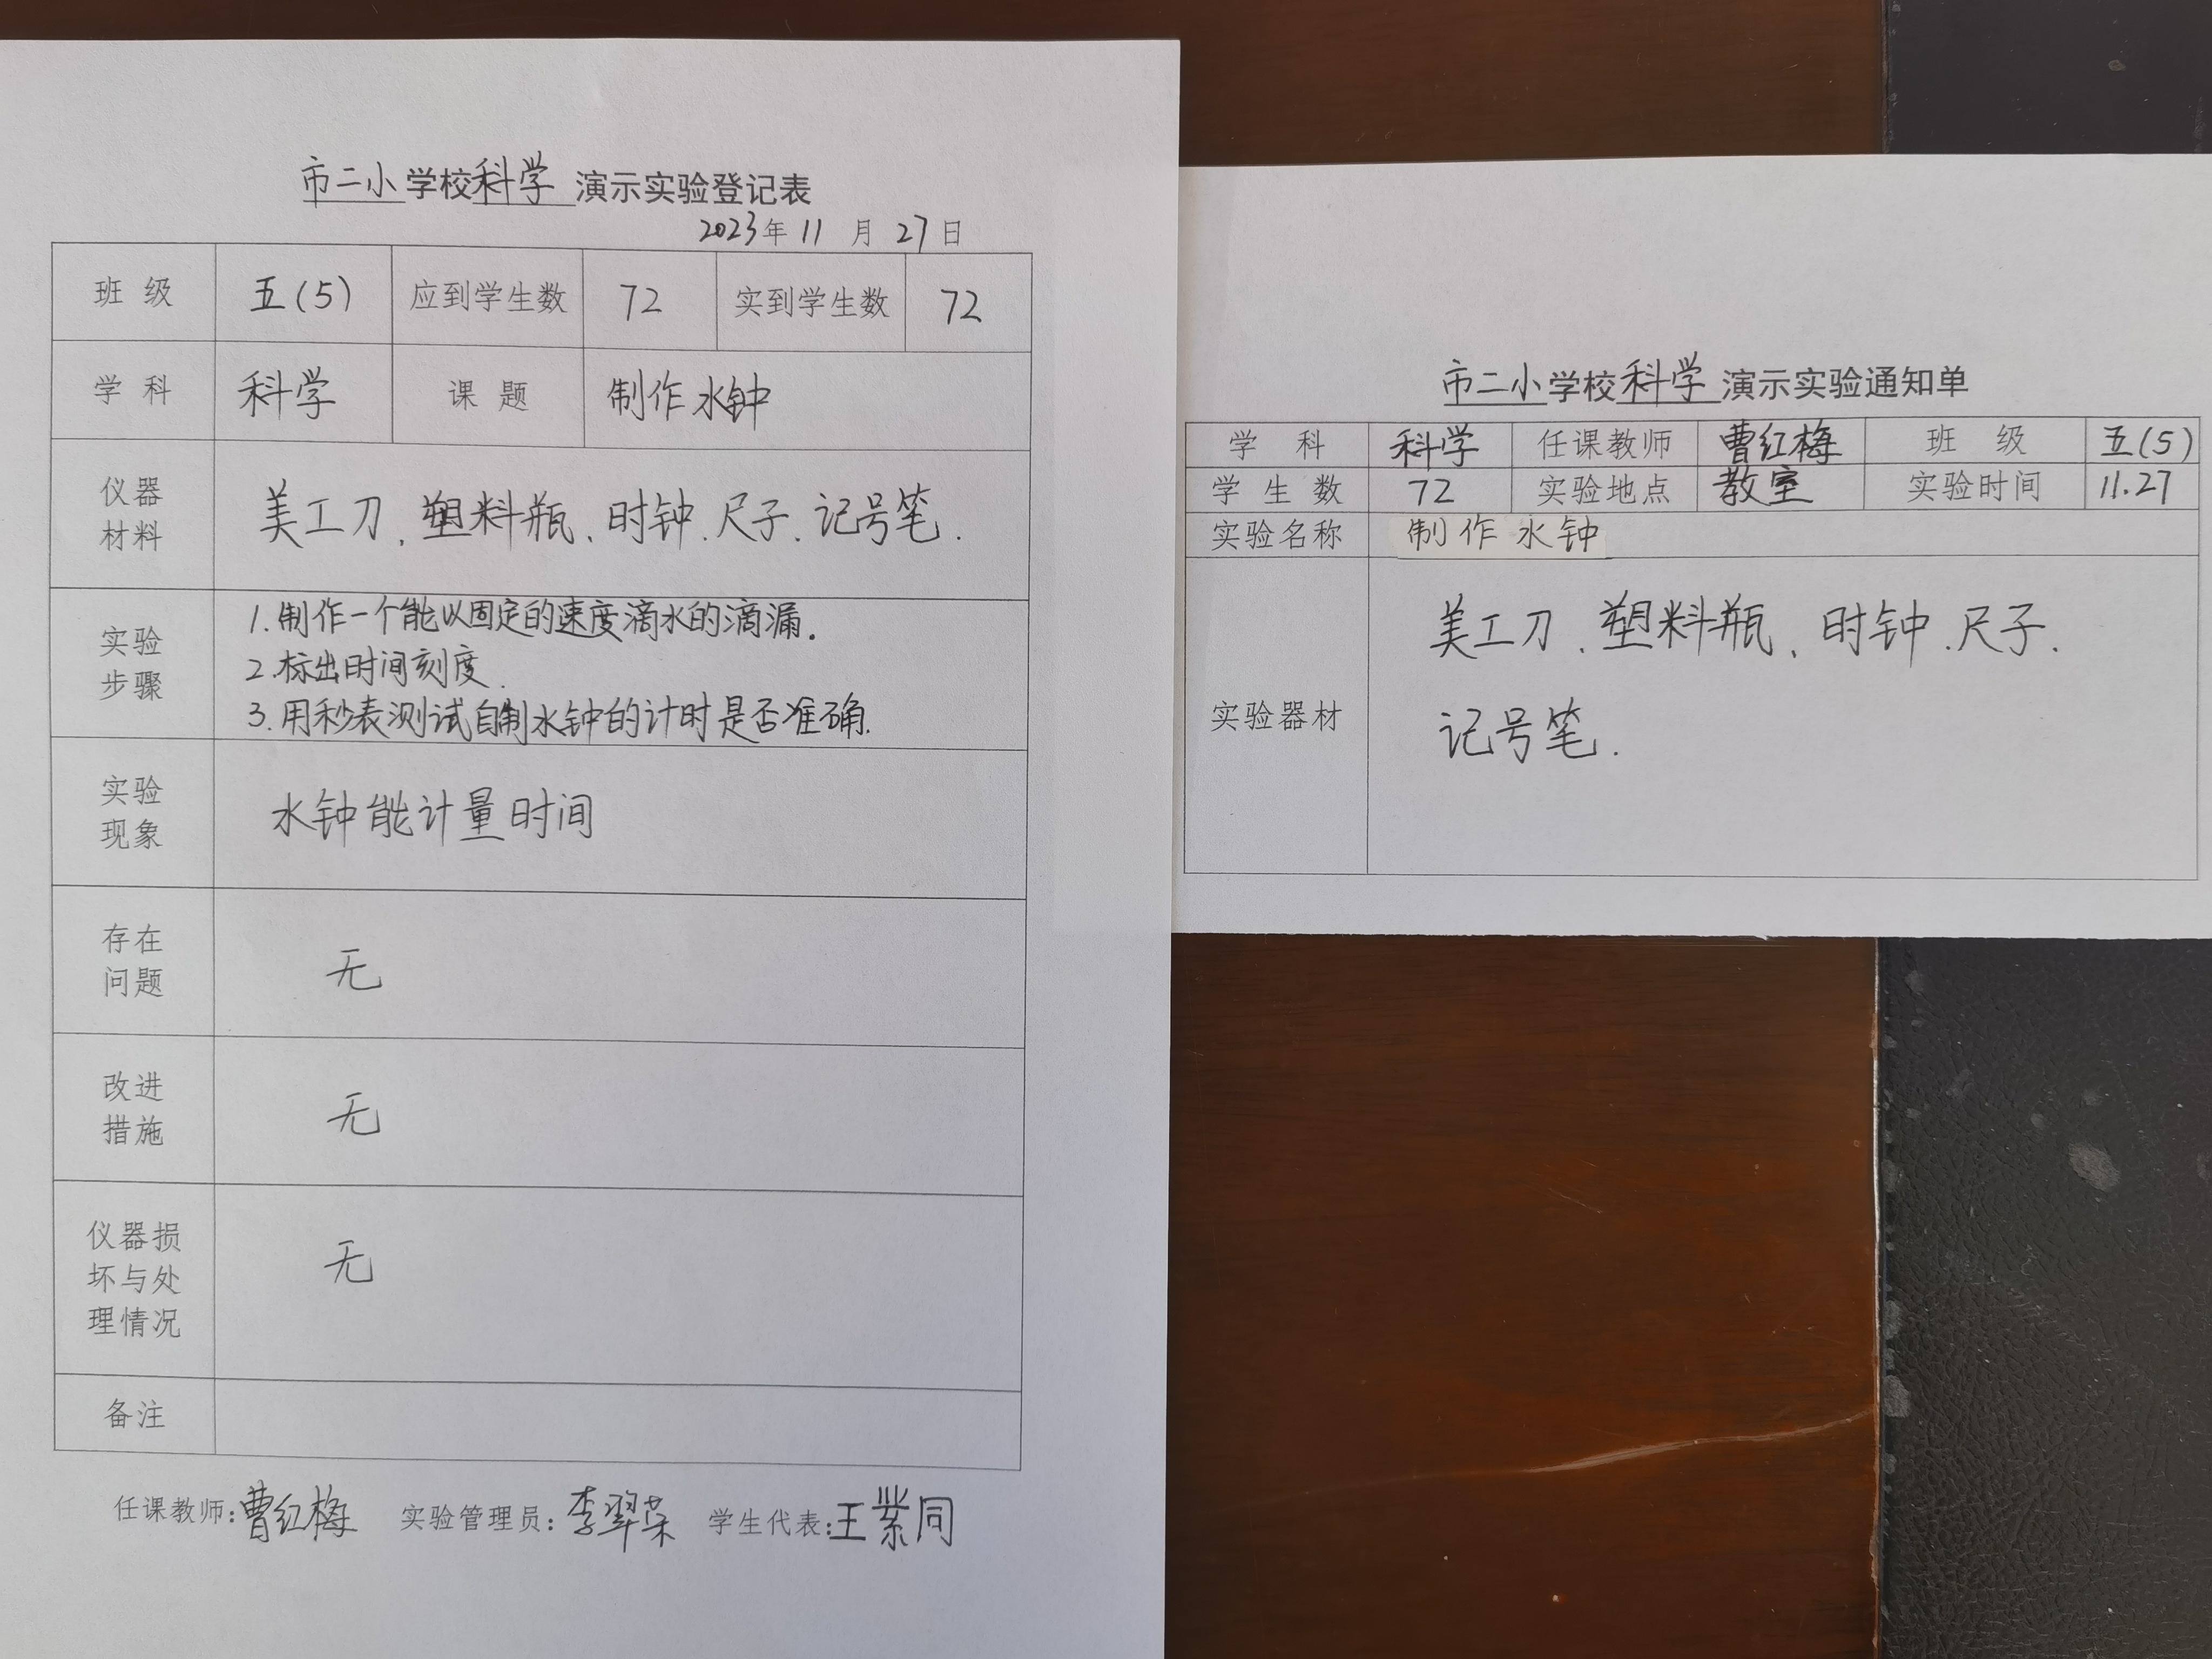 市二小学校科学演示实验登记表
2023年 11 月 27日
班 级 五(5) 应到学生数 72 实到学生数 72
学 科 科学 课 题 制作水钟
仪器
材料
美工刀.塑料瓶、时钟.尺子.记号笔.
实验
步骤
1.制作一个能以固定的速度滴水的滴漏.
2.标出时间刻度.
3.用秒表测试自制水钟的计时是否准确.
实验
现象
水钟能计量时间
存在
问题
无
改进
措施
无
仪器损
坏与处
理情况
无
备注
任课教师:曹红梅 实验管理员:李翠荣 学生代表:王 同
市二小学校科学演示实验通知单
学 科 科学 任课教师 曹红梅 班 级 五(5)
学生数 72 实验地点 教室 实验时间 11.27
实验名称 制作水钟
实验器材
美工刀.塑料瓶、时钟.尺子.
记号笔.